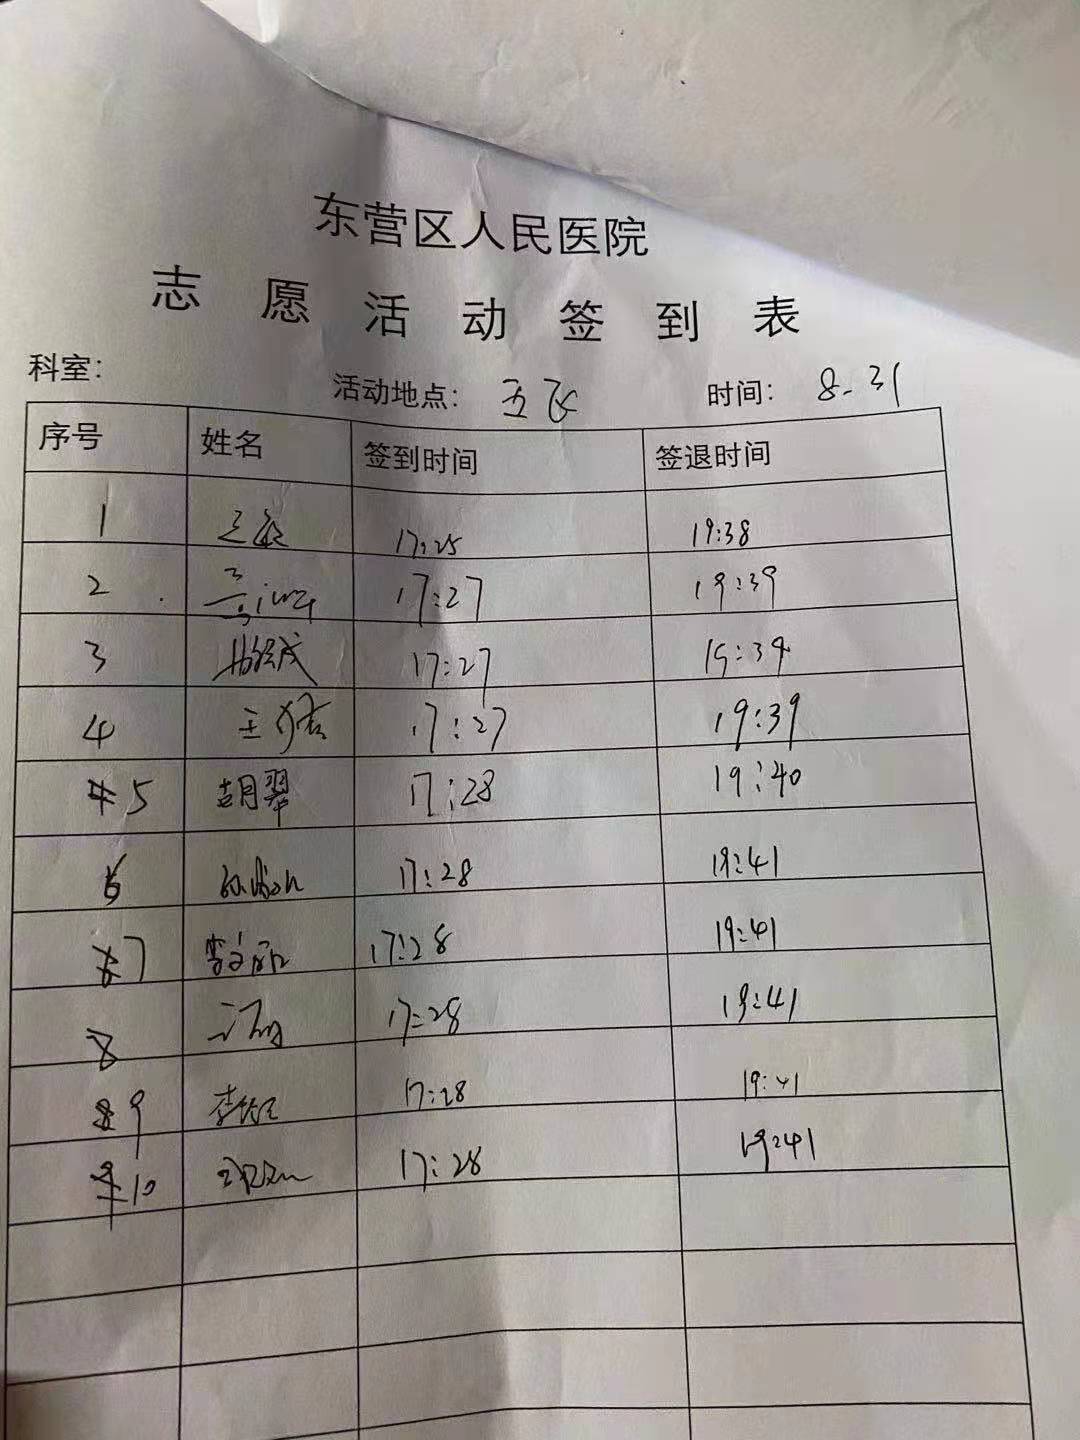 东营区人民医院
志愿活动签到表
科室：
活动地点： 五 时间： 8-31
序号 姓名 签到时间 签退时间
1 17:25 19:38
2 17:27 19:39
3 17:27 19:39
4 王 17:27 19:39
5 胡翠 17:28 19:40
6 17:28 19:41
7 17:28 19:41
8 17:28 19:41
9 李 17:28 19:41
10 17:28 19:41